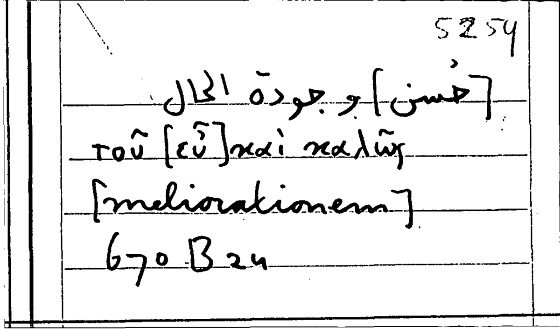 5254
[حُسن] وجودة الحال
τοῦ [εὖ] καὶ καλῶς
[meliorationem]
670 B 24